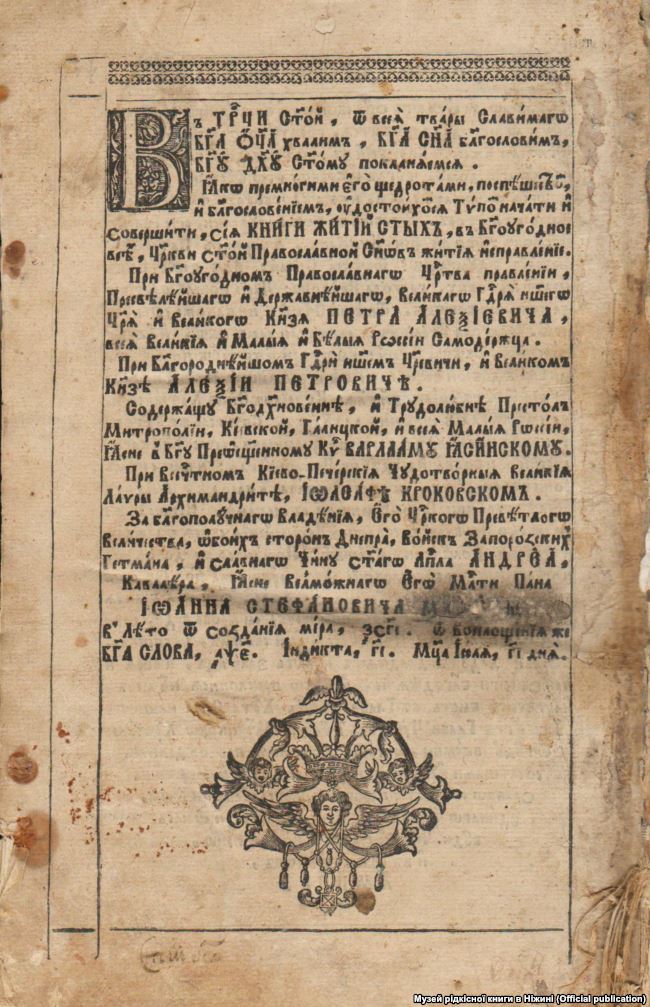 Въ Трⷪ҇ци Ст҃ой, ѿ всеѧ̀ твари Славимаго
Бг҃а Ѻц҃а̀ хвалимъ, Бг҃а Сн҃а бл҃гословимъ,
Бг҃ꙋ Дх҃ꙋ Ст҃омꙋ покланѧ́емсѧ.
Ꙗкѡ премногими єгѡ̀ щедротами,
и҆ бл҃гословенїемъ, Тѵпоⷨ начати и҆
совершити, сїѧ̀ КНИГИ ЖИТІЙ СТ҃ЫХЪ, въ Бг҃оꙋгодное
Цр҃кви Ст҃ой Православной Сн҃ѡвъ житїѧ и҆справленїе.
При Бг҃оꙋгодномъ Православнагѡ Цр҃тва правленїи,
Пресвѣтлѣйшагѡ и҆ Державнѣйшагѡ, Великагѡ Гдⷭ҇рѧ̀ н҃шегѡ
Цр҃ѧ̀ и҆ Великогѡ Кн҃зѧ ПЕТРА АЛЕѮІЕВИЧА,
всеѧ̀ Великїѧ и҆ Малыѧ и҆ Бѣлыѧ Рѡссїи Самодержца.
При Бл҃городнѣйшомъ Гдⷭ҇рѣ н҃шемъ Цр҃евичи, и҆ Великомъ
Кн҃зѣ АЛЕѮІИ ПЕТРОВИЧѢ.
Содержащꙋ Бг҃одх҃новеннѣ, и҆ Трꙋдолюбнѣ Престолъ
Митрополїи, Кїевской, Галицкой, и҆ всеѧ̀ Малыѧ Рѡссїи,
Ꙗсне в̾ Бг҃ꙋ Преѡⷭ҇щенномꙋ Кѵⷬ҇ ВАРЛААМꙊ ꙖСИНСКОМꙊ.
При Всечⷭ҇тномъ Кїево-Печерскїѧ Чꙋдотворныѧ Великїѧ
Лаѵры Архимандритѣ, ІѠАСАФѢ КРОКОВСКОМЪ.
За бл҃гополꙋчнагѡ Владѣнїѧ, Єгѡ̀ Цр҃когѡ Пресвѣтлогѡ
Величества, ѡ҆боихъ сторонъ Днепра, Войскъ Запорозскихъ
Гетмана, и҆ славнагѡ Чинꙋ ст҃агѡ Ап҃ла АНДРЕА,
Кавалѣра, Ꙗсне Велможнагѡ Єгѡ̀ Млⷭ҇ти Пана
ІѠАННА СТЕФАНОВИЧА
в̾ Лѣто ѿ созданїѧ мїра, ҂зсг҃і. Ѿ воплощенїѧ же
Бг҃А СЛОВА, ҂аѱе҃. Індикта, г҃і. Мцⷭ҇а Іюлѧ, дн҃ѧ.
Музей рідкісної книги в Ніжині (Official publication)